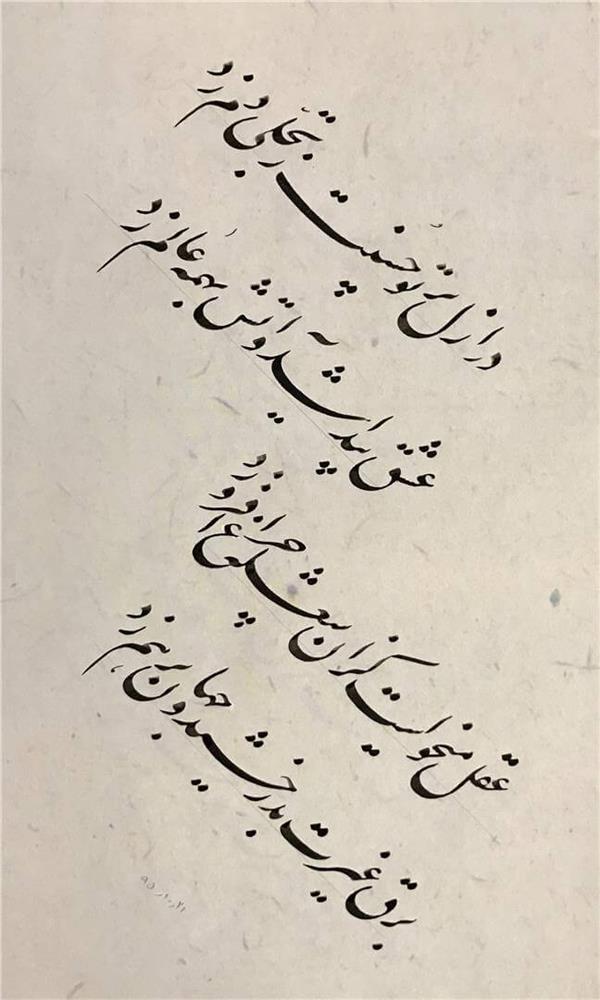 در ازل پرتو حسنت ز تجلی دم زد
عشق پیدا شد و آتش بهمه عالم زد
عقل میخواست کزان شعله چراغ افروزد
برق غیرت بدرخشید و جهان برهم زد